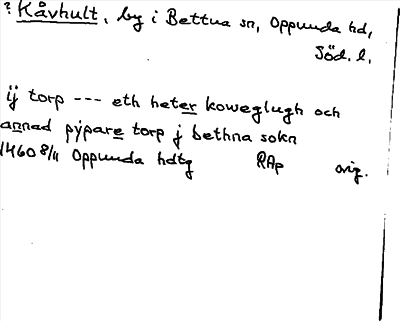 ? Kåvhult, by i Bettna sn, Oppunda hd,
Söd. l.
ij torp --- eth heter koweglugh och
annad pýpare torp j bethna sokn
1460 8/11 Oppunda hdtg RAp orig.